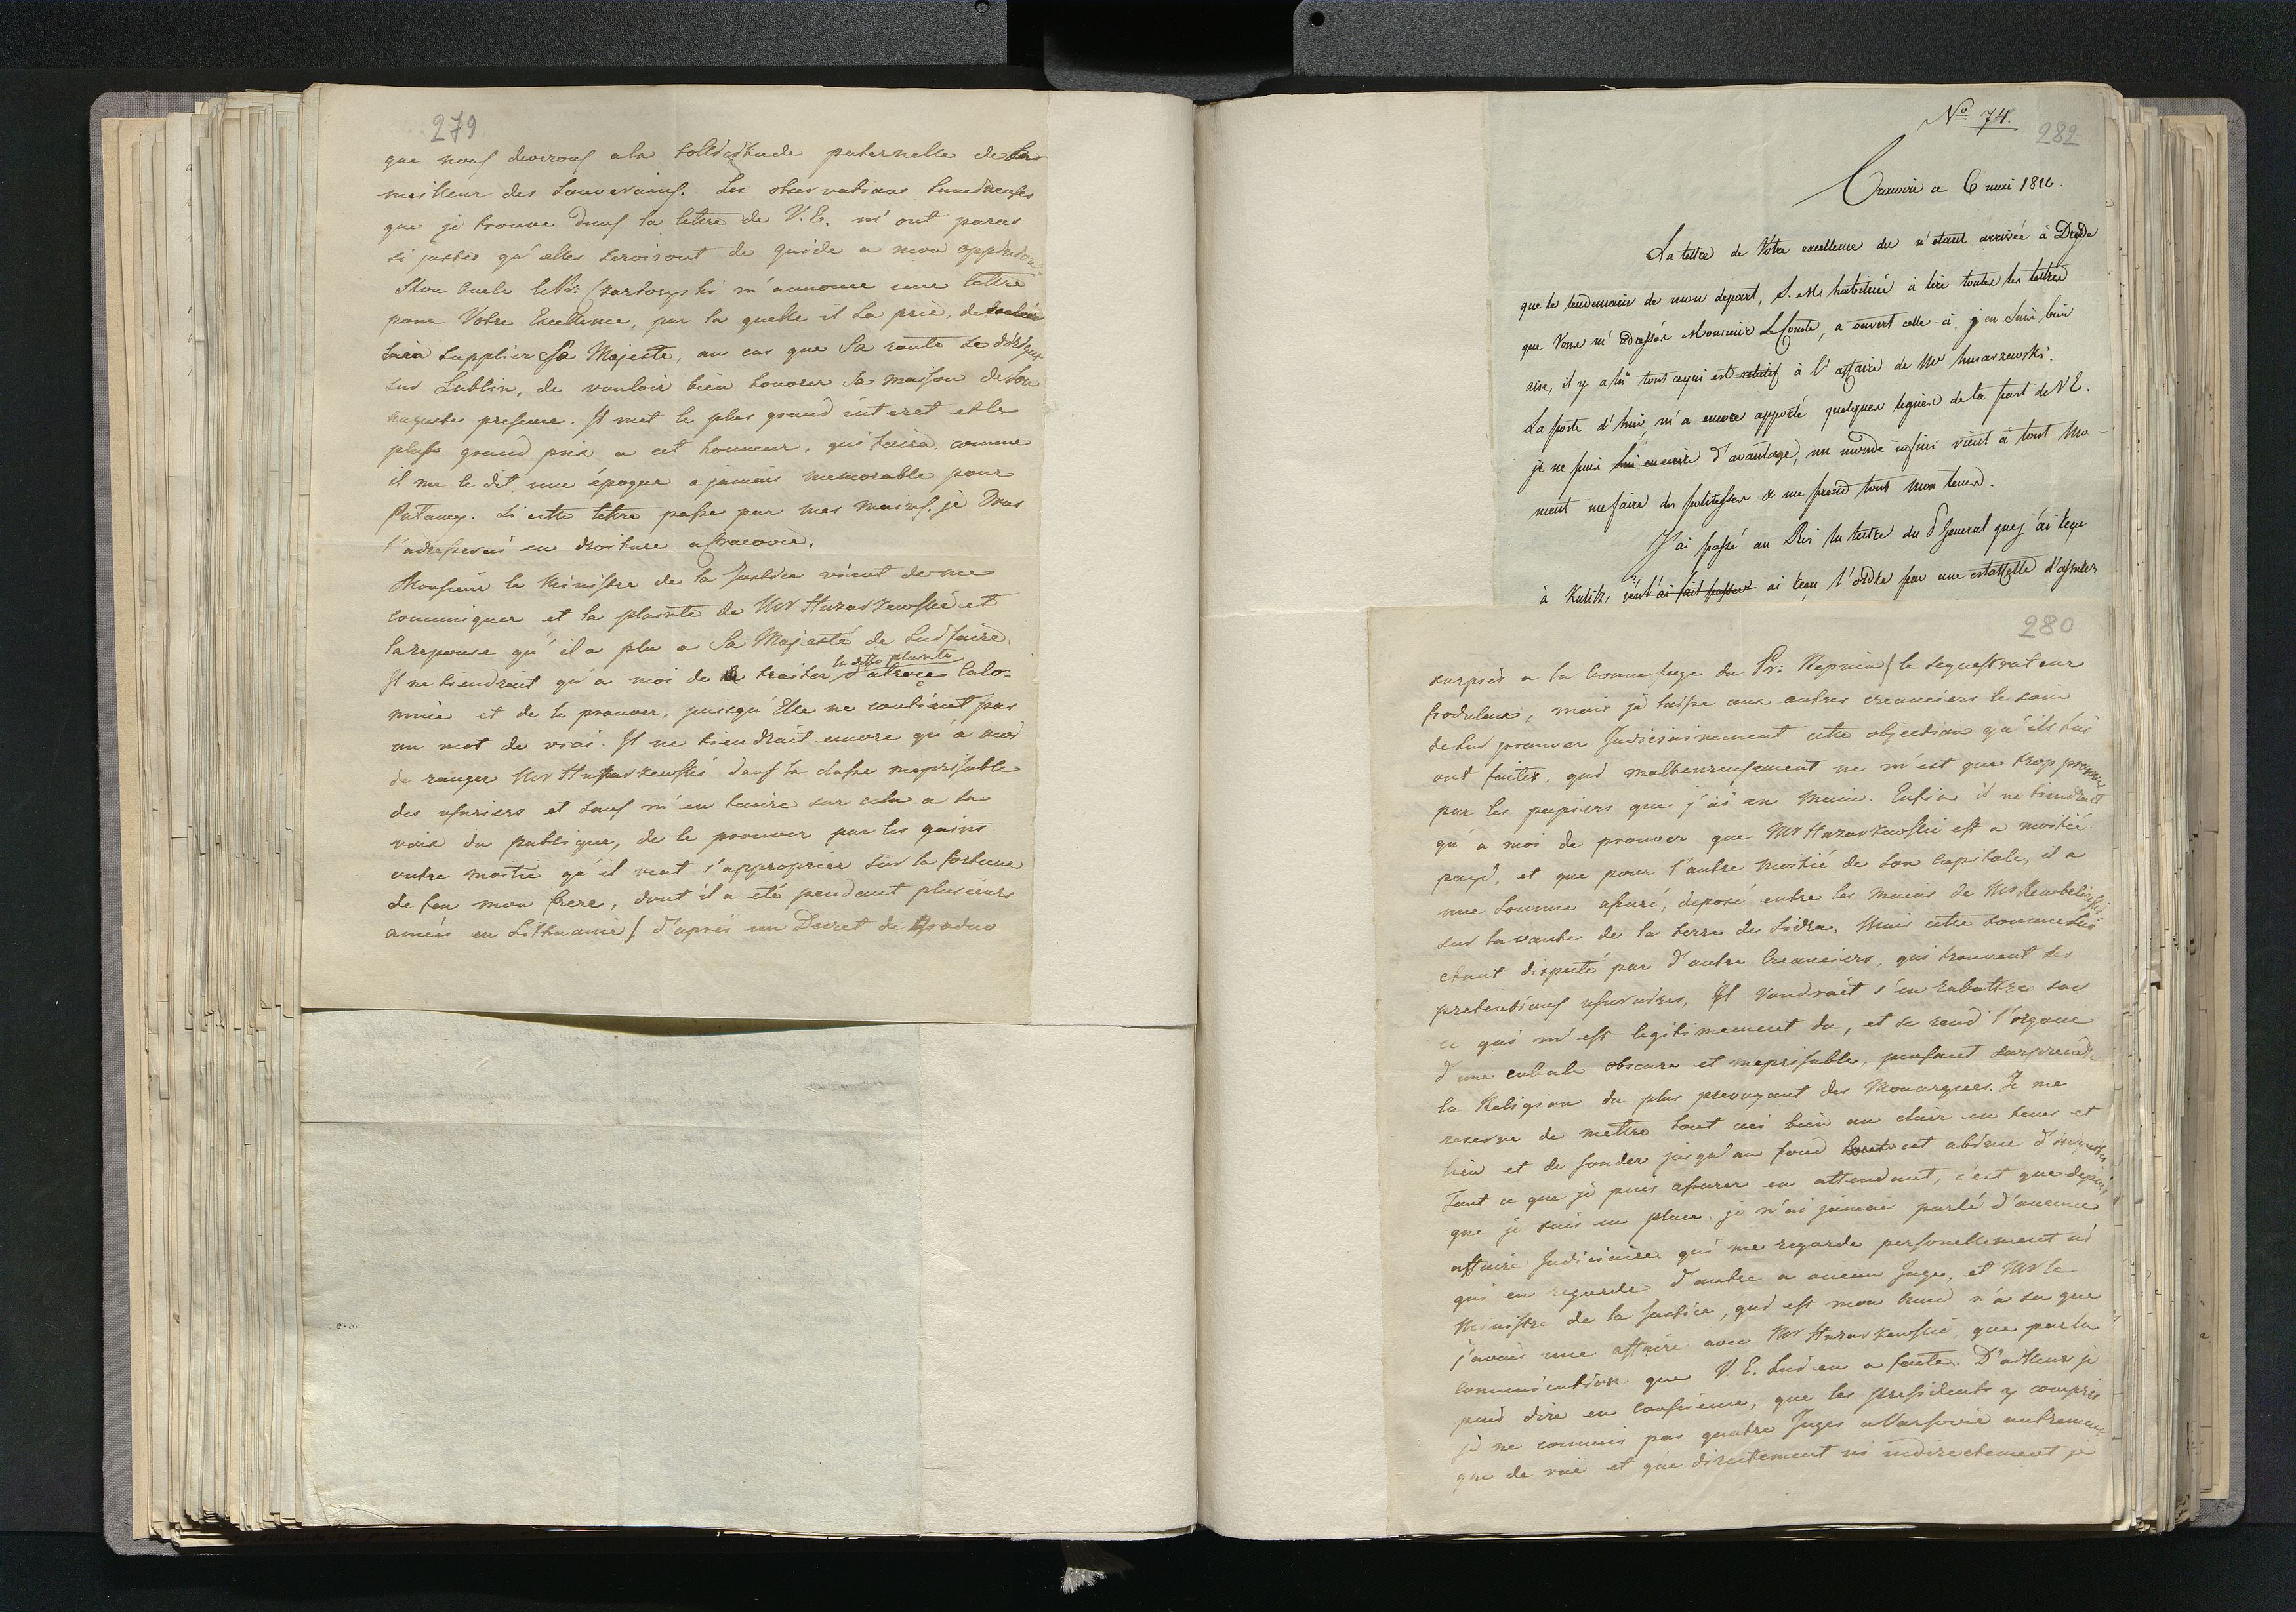 279
que nous devrons a la sollicitude paternelle de
meilleur des Souverains. Les observations lumineuses
que je trouve dans la lettre de V. E. m'ont parus
si justes qu'elles seroisont de guide a mon
Mon oncle le Pr: Czartoryski m'annonce une lettre
pour Votre Excellence, par la quelle il La prie, de
bien supplier Sa Majesté, au cas que Sa route se dirigea
sur Lublin, de vouloir bien honorer sa maison de Son
auguste presence. Il met le plus grand interet et le
plus grand prix a cet honneur, qui ferira, comme
il me le dit, une époque a jamais memorable pour
Pulawy. Si cette lettre passe par mes mains, je Vous
l'adresserai en droiture a Cracovie.
Monsieur le Ministre de la Justice vient de me
communiquer et la plainte de Mr Huzarzewski et
la reponse qu'il a plu a Sa Majesté de Lui faire.
la ditte plainte
Il ne tiendrait qu'a moi de traiter d'atroçe Calo-
mnie et de le prouver, puisqu'Elle ne contient pas
un mot de vrai. Il ne tiendrait encore qu'a moi
de ranger Mr Huzarzewski dans la classe meprisable
des usuriers et sans m'en tenire sur cela a la
voix du publique, de le prouver par les gains
outre moitié qu'il veut s'approprier sur la fortune
de feu mon frere, dont il a eté pendant plusieurs
années en Lithuanie ( d'après un Decret de Grodno
No 74.
282
Cracovie ce 6 mai 1810.
La lettre de Votre excellence du n'étant arrivée à Dresde
que le lendemain de mon depart, S. M. habitueé à lire toutes les lettres
que Vous m'adressés Monsieur le Comte, a ouvert celle-ci, j'en suis bien
aise, il y a lu tout ce qui est relatif à l'affaire de Mr huzarzewski.
La poste d'hui m'a encore apporté quelques lignes de la part de V E.
je ne puis lui en ecrire d'avantage, un monde infini vient à tout mo-
ment me faire des politesses & me prend tout mon tems.
J'ai passé au Roi la lettre du General que j'ai reçu
à Kulitz, je lui ai fait passer ai reçu l'ordre par une estaffette d'assurer
280
surprès a la bonne foye du Pr: Repnin ) le sequestrateur
froduleux, mais je laisse aux autres creanciers le soin
de Lui prouver Judiciairement cette objection qu'ils lui
ont faites, qui malheureusement ne m'est que trop prouvée
par les papiers que j'ai en main. Enfin il ne tiendrait
qu'a moi de prouver que Mr Huzarzewski est a moitié
payé, et que pour l'autre moitié de son Capitale, il a
une somme assuré, deposé entre les mains de Mr
sur la vante de la terre de Sidra. Mai cette somme Lui
etant disputé par d'autre Creanciers, qui trouvent ses
pretentions usuraires, Il Voudrait s'en rabattre sur
ce qui m'est legitimement du, et se rend l'organe
d'une cabale obscure et meprisable, pensant surprendre
la Religion du plus prevoyant des Monarques. Je me
reserve de mettre tout ceci bien au clair en tems et
lieu et de sonder jusqu'au fond cet abime d'iniquités
Tout ce que je puis assurer en attendant, c'est que depuis
que je suis en place, je n'ai jamais parlé d'aucune
affaire Judiciaire qui me regarde personellement ni
qui en regarde d'autre a aucun Juge, et Mr le
Ministre de la Justice, qui est mon Ami n'a su que
j'avais une affaire avec Mr Huzarzewski, que par la
Comunication que V. E. Lui en a faite. D'ailleurs je
puis dire en Confience, que les presidents y compris
je ne connais pas quatre Juges a Varsovie autrement
que de vuë et que directement ni indirectement je